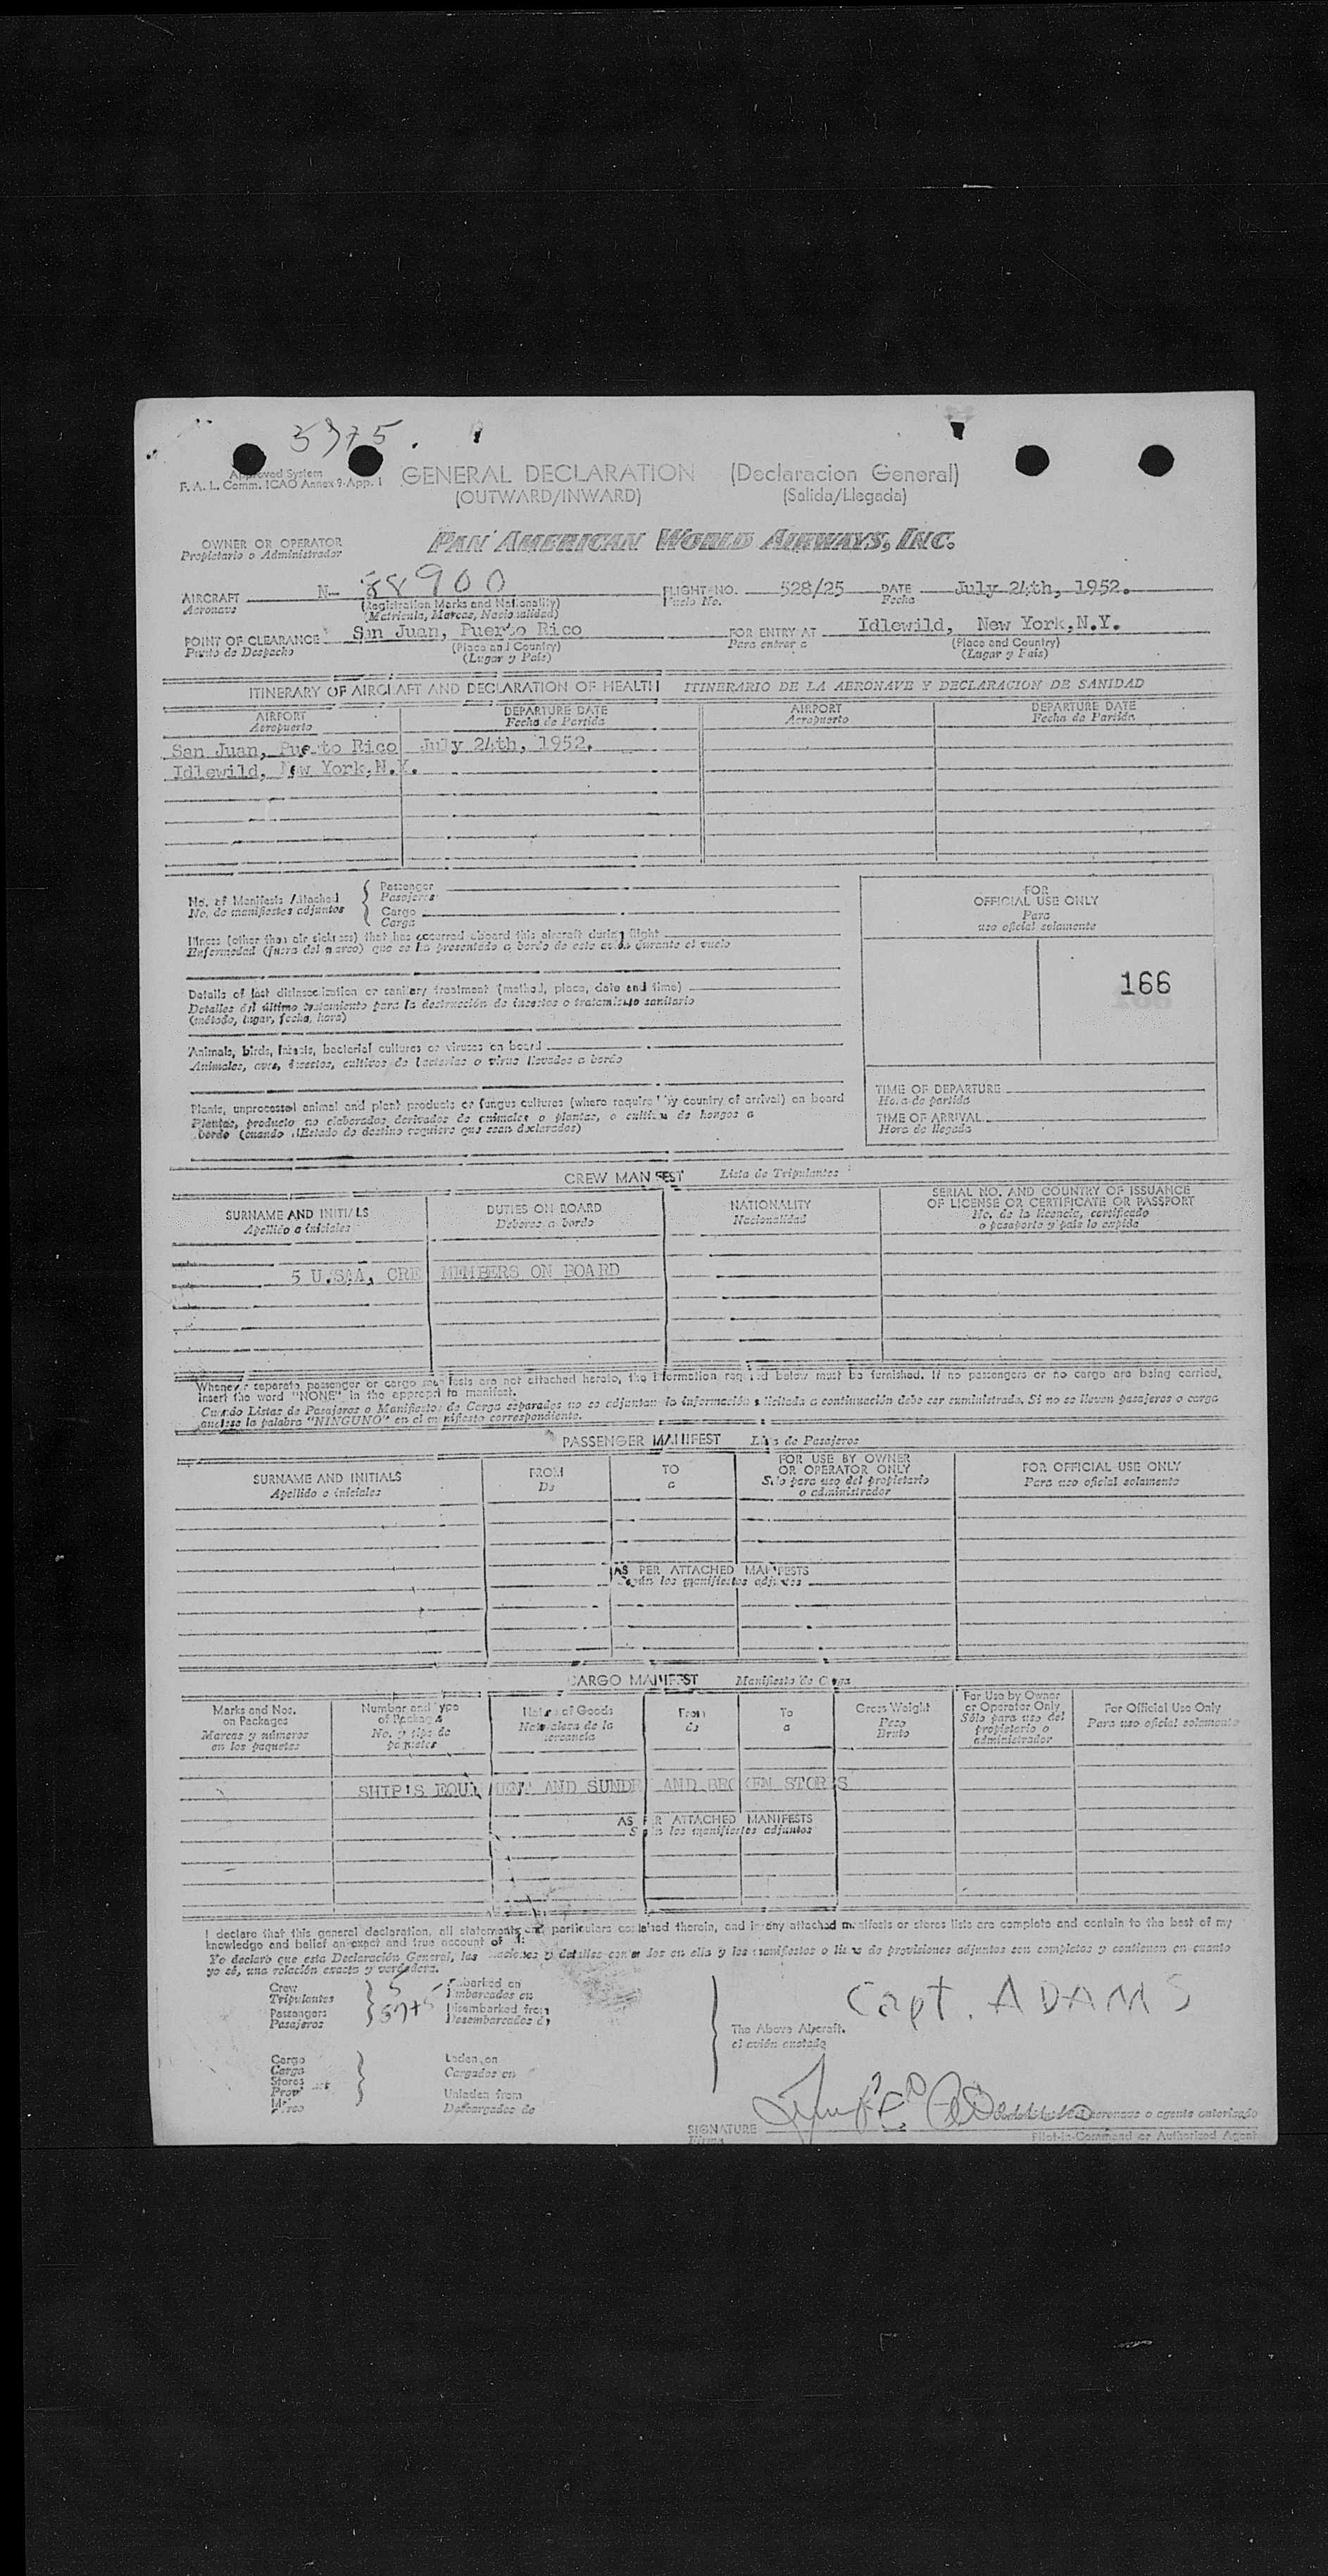 Approved System
F. A. L. Comm. ICAO Annex 9-App. 1
GENERAL DECLARATION (Declaracion General)
(OUTWARD/INWARD) (Salida/Llegada)
OWNER OR OPERATOR PAN AMERICAN WORLD AIRWAYS, INC.
Propietario o Administrador
AIRCRAFT N- 88900 FLIGHT NO. 528/25 DATE July 24th, 1952.
Aeronave (Registration Marks and Nationality) Vuelo No. Fecha
(Matricula, Marcas, Nacionalidad)
POINT OF CLEARANCE San Juan, Puerto Rico FOR ENTRY AT Idlewild, New York,N.Y.
Punto de Despacho (Place and Country) Para entrar a (Place and Country)
(Lugar y País) (Lugar y País)
ITINERARY OF AIRCRAFT AND DECLARATION OF HEALTH ITINERARIO DE LA AERONAVE Y DECLARACION DE SANIDAD
AIRPORT DEPARTURE DATE AIRPORT DEPARTURE DATE
Aeropuerto Fecha de Partida Aeropuerto Fecha de Partida
San Juan, Puerto Rico July 24th, 1952.
Idlewild, New York,N.Y.
No. of Manifests Attached Passenger
No. de manifiestos adjuntos Pasajeros
Cargo
Carga
Illness (other than air sickness) that has occurred aboard this aircraft during flight
Enfermedad (fuera del mareo) que se ha presentado a bordo de este avión durante el vuelo
Details of last disinsectization or sanitary treatment (method, place, date and time)
Detalles del último tratamiento para la destrucción de insectos o tratamiento sanitario
(método, lugar, fecha, hora)
Animals, birds, insects, bacterial cultures or viruses on board
Animales, aves, insectos, cultivos de bacterias o virus llevados a bordo
Plants, unprocessed animal and plant products or fungus cultures (where required by country of arrival) on board
Plantas, producto no elaborados derivados de animales o plantas, o cultivo de hongos a
bordo (cuando el Estado de destino requiere que sean declarados)
FOR
OFFICIAL USE ONLY
Para
uso oficial solamente
166
TIME OF DEPARTURE
Hora de partida
TIME OF ARRIVAL
Hora de llegada
CREW MANIFEST Lista de Tripulantes
SURNAME AND INITIALS DUTIES ON BOARD NATIONALITY SERIAL NO. AND COUNTRY OF ISSUANCE
OF LICENSE OR CERTIFICATE OR PASSPORT
Apellido e iniciales Deberes a bordo Nacionalidad No. de la licencia, certificado
o pasaporte y país lo expide
5 U.S.A, CRE MEMBERS ON BOARD
Whenever separate passenger or cargo manifests are not attached hereto, the information required below must be furnished. If no passengers or no cargo are being carried,
insert the word "NONE" in the appropriate manifest.
Cuando Listas de Pasajeros o Manifiestos de Carga separados no se adjuntan la información solicitada a continuación debe ser suministrada. Si no se lleven pasajeros o carga
anótese la palabra "NINGUNO" en el manifiesto correspondiente.
PASSENGER MANIFEST Lista de Pasajeros
SURNAME AND INITIALS FROM TO FOR USE BY OWNER OR OPERATOR ONLY FOR OFFICIAL USE ONLY
Apellido e iniciales De a Sólo para uso del propietario o administrador Para uso oficial solamente
AS PER ATTACHED MANIFESTS
Según los manifiestos adjuntos
CARGO MANIFEST Manifiesto de Carga
Marks and Nos. on Packages Number and Type of Packages Nature of Goods From To Gross Weight For Use by Owner or Operator Only For Official Use Only
Marcas y números en los paquetes No. y tipo de paquetes Naturaleza de la mercancia de a Peso Bruto Sólo para uso del propietario o administrador Para uso oficial solamente
SHIP'S EQUIPMENT AND SUNDRY AND BROKEN STORES
AS PER ATTACHED MANIFESTS
Según los manifiestos adjuntos
I declare that this general declaration, all statements and particulars contained therein, and in any attached manifests or stores lists are complete and contain to the best of my
knowledge and belief an exact and true account of all:
Yo declaro que esta Declaración General, las relaciones y detalles contenidos en ella y los manifiestos o listas de provisiones adjuntos son completos y contienen en cuanto
yo sé, una relación exacta y verdadera.
Crew 5 Embarked on
Tripulantes Embarcados en
Passengers Disembarked from
Pasajeros Desembarcados de
Capt. ADAMS
The Above Aircraft.
el avión anotado
Cargo Laden on
Carga Cargados en
Stores Unladen from
Descargados de
SIGNATURE aeronave o agente autorizado
Firma Pilot-in-Command or Authorized Agent